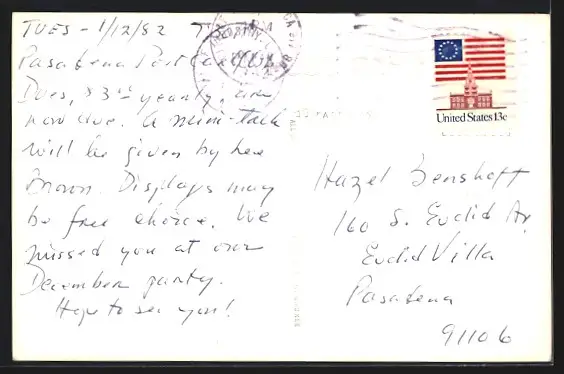 TUES - 1/12/82
Pasadena Postcard
Dues, $3 00 yearly, are
now due. A mini-talk
will be given by Lee
Brown. Displays may
be free choice. We
missed you at our
December party.
Hope to see you!
United States 13c
Hazel Benshoff
160 S. Euclid Av.
Euclid Villa
Pasadena
91106